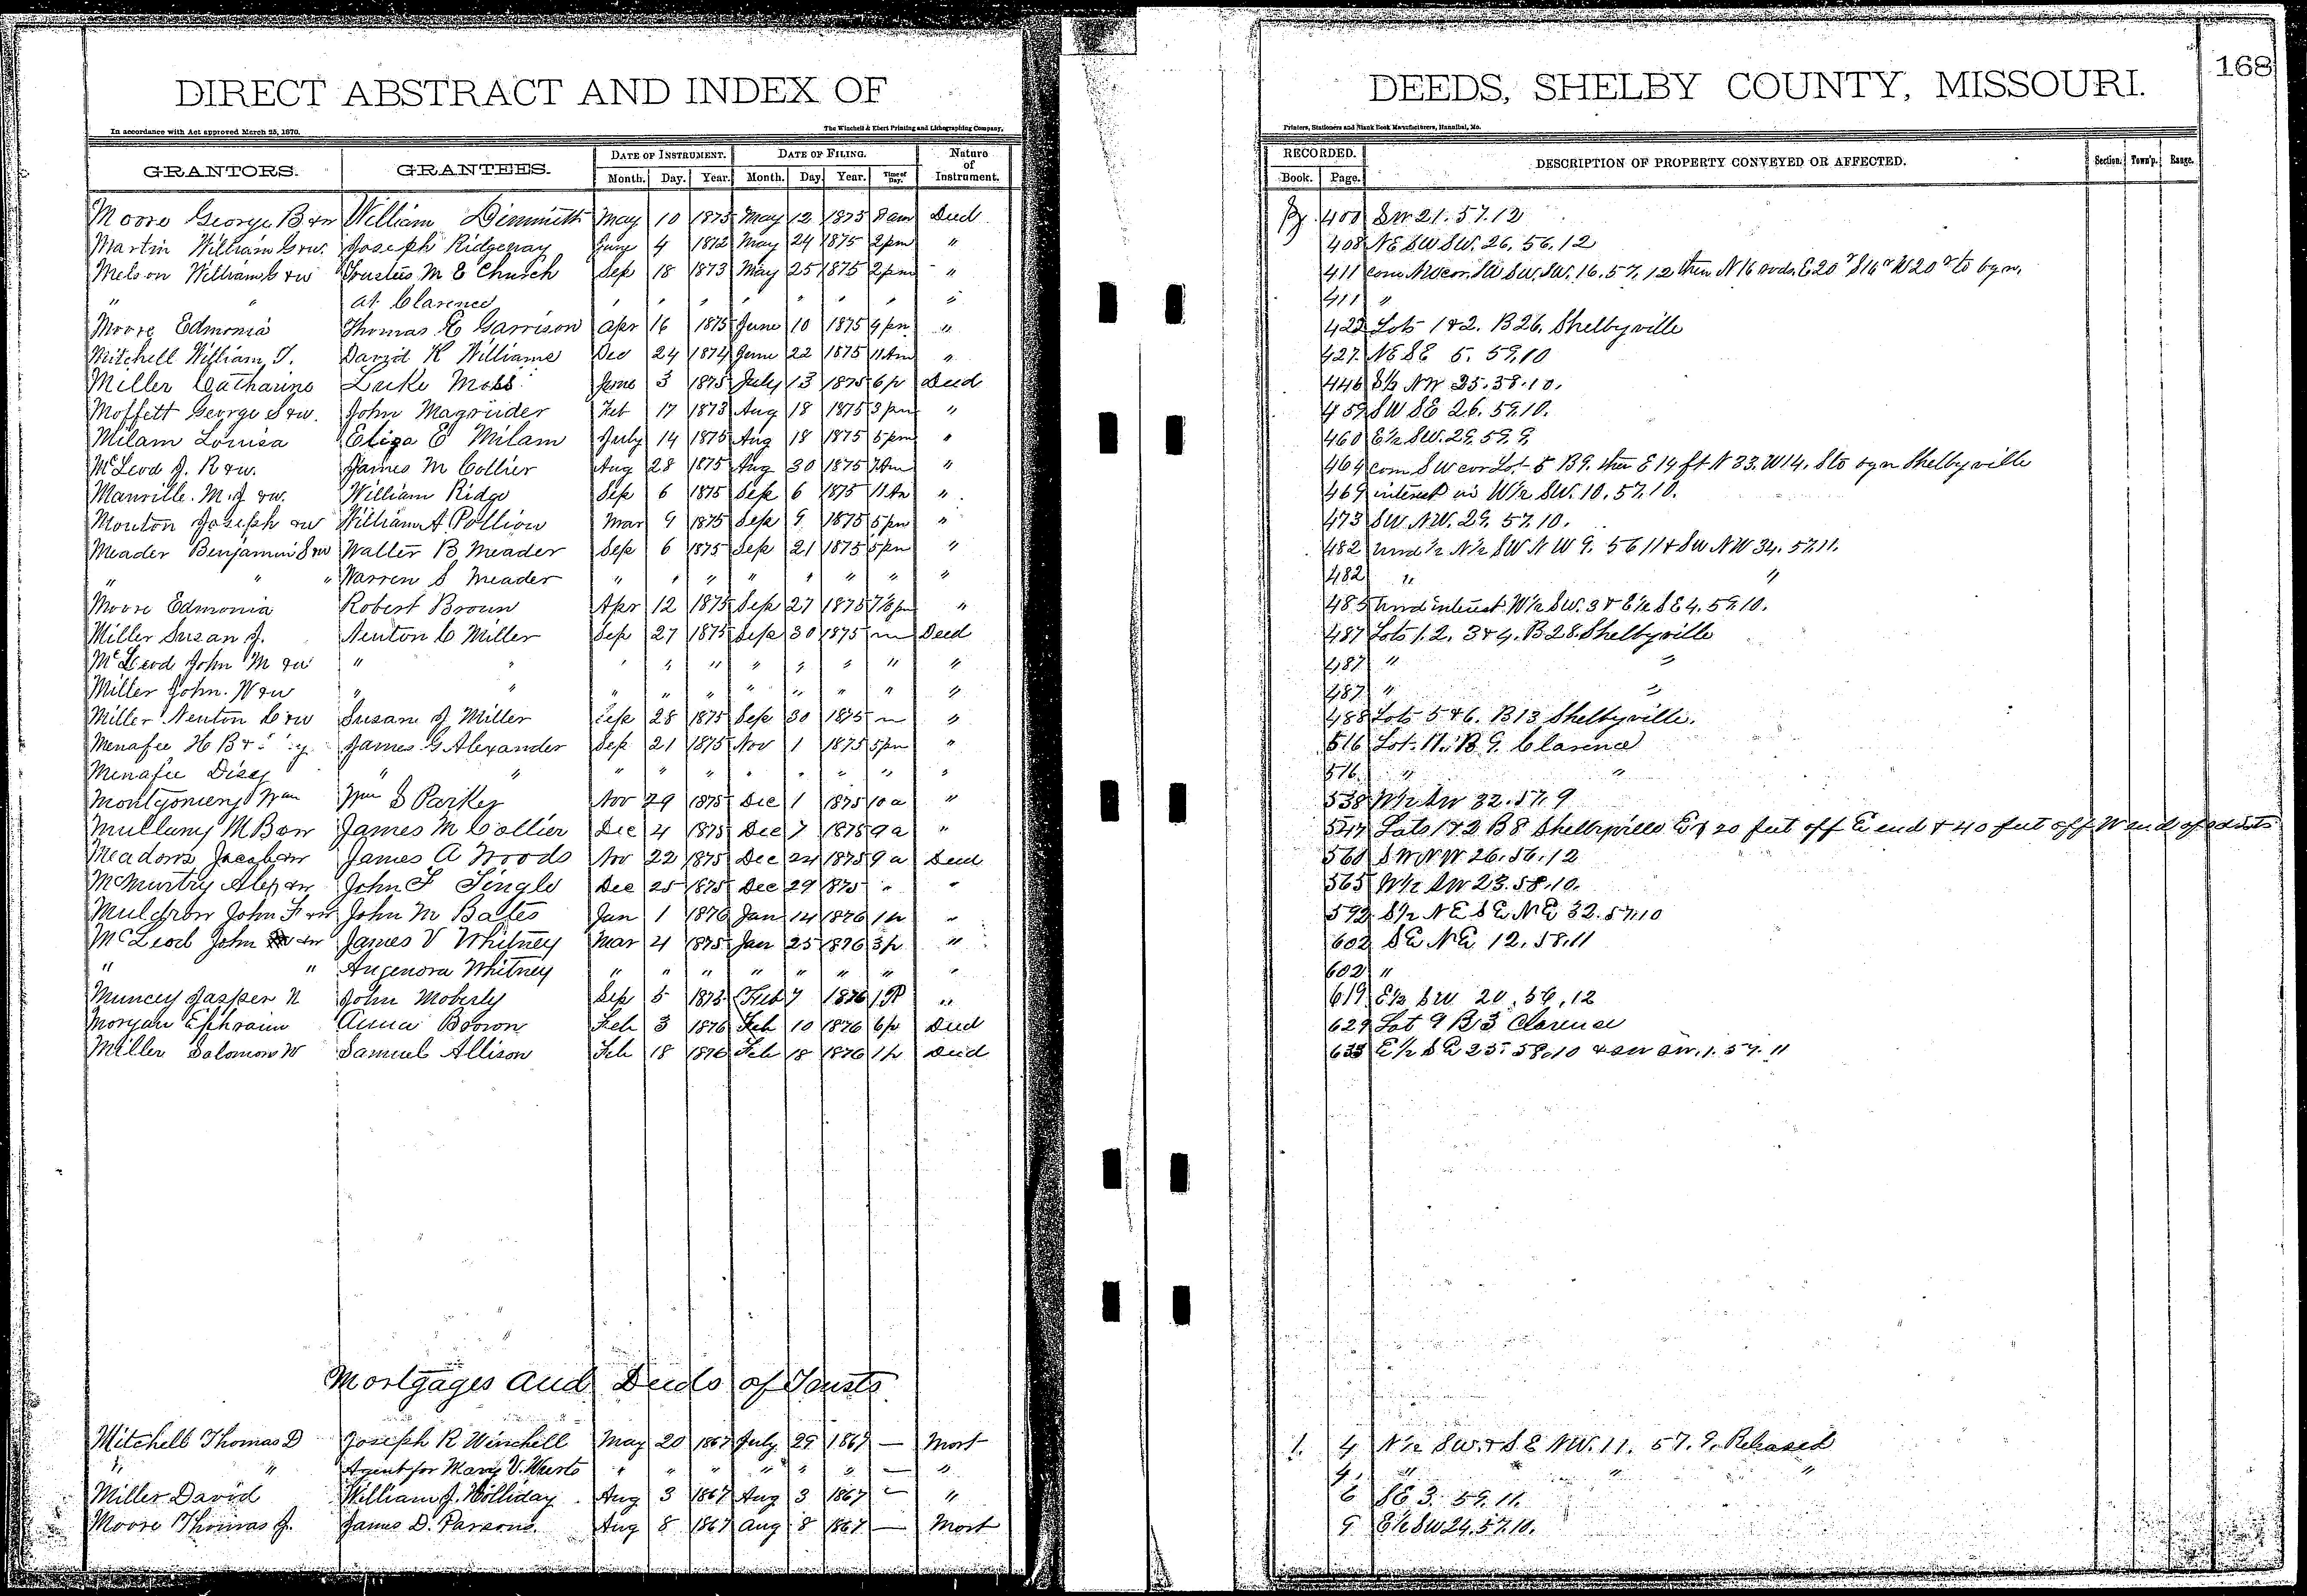 DIRECT ABSTRACT AND INDEX OF DEEDS, SHELBY COUNTY, MISSOURI. 168
In accordance with Act approved March 25, 1870. The Winchell & Ebert Printing and Lithographing Company, Printers, Stationers and Blank Book Manufacturers, Hannibal, Mo.
GRANTORS. GRANTEES. DATE OF INSTRUMENT. DATE OF FILING. Nature of Instrument. RECORDED. DESCRIPTION OF PROPERTY CONVEYED OR AFFECTED. Section. Town'p. Range.
Month. Day. Year. Month. Day. Year. Time of Day. Book. Page.
Moore George B & w William Dimmitt May 10 1875 May 12 1875 8 am Deed 400 SW 21. 57. 12
Martin William G & w. Joseph Ridgeway June 4 1872 May 24 1875 2 pm " 408 NE SW SW. 26. 56. 12
Melson William & w Trustees M E Church Sep 18 1873 May 25 1875 2 pm " 411 com NW cor. SW SW. SW. 16. 57. 12 then N 16 rods E 20 " S 16 " W 20 " to bgn.
" " at Clarence " " " " " " " " 411 "
Moore Edmonia Thomas E Garrison Apr 16 1875 June 10 1875 4 pm " 422 Lots 1 & 2. B 26. Shelbyville
Mitchell William T. David K Williams Dec 24 1874 June 22 1875 11 Am " 427. NE SE 5. 59. 10
Miller Catharine Luke Moss June 3 1875 July 13 1875 6 p Deed 446 S½ NW 25. 58. 10.
Moffett George S & w. John Magruder Feb 17 1873 Aug 18 1875 3 pm " 459 SW SE 26. 59. 10.
Milam Louisa Eliza E Milam July 14 1875 Aug 18 1875 5 pm " 460 E½ SW. 29. 59. 9.
McLeod J. R & w. James M Collier Aug 28 1875 Aug 30 1875 7 Am " 464 com SW cor Lot 5 B 9. then E 14 ft N 33. W 14. S to bgn Shelbyville
Manville. M. J. & w. William Ridge Sep 6 1875 Sep 6 1875 11 Am " 469 interest in W½ SW. 10. 57. 10.
Mouton Joseph & w William A Pollion Mar 9 1875 Sep 9 1875 5 pm " 473 SW NW. 29. 57. 10.
Meader Benjamin S & w Walter B Meader Sep 6 1875 Sep 21 1875 5 pm " 482 und ½ N½ SW NW 9. 56 11 & SW NW 34. 57. 11.
" " " Warren S Meader " " " " " " " " 482 " "
Moore Edmonia Robert Brown Apr 12 1875 Sep 27 1875 " 485 und interest W½ SW. 3 & E½ SE 4. 59. 10.
Miller Susan J. Newton C Miller Sep 27 1875 Sep 30 1875 m Deed 487 Lots 1. 2. 3 & 4. B 28. Shelbyville
McLeod John M & w " " " " " " " " " " 487 " "
Miller John. W & w " " " " " " " " " " 487 " "
Miller Newton C & w Susan J Miller Sep 28 1875 Sep 30 1875 m " 488 Lots 5 & 6. B 13 Shelbyville.
Menafee H B & James G Alexander Sep 21 1875 Nov 1 1875 5 pm " 516 Lot. 11. B 9. Clarence
Menafee Dicey " " " " " " " " " " 516. " "
Montgomery Wm Wm S Parker Nov 29 1875 Dec 1 1875 10 a " 538 W½ SW 32. 57. 9
Mullany M B & w James M Collier Dec 4 1875 Dec 7 1875 9 a " 547 Lots 1 & 2 B 8 Shelbyville 20 feet off E end & 40 feet off W end of lots
Meadows Jacob & w James A Woods Nov 22 1875 Dec 24 1875 9 a Deed 560 SW NW 26. 56. 12
McMurtry Alex & w John F Singlo Dec 25 1875 Dec 29 1875 " " 565 W½ SW 23. 58. 10.
Muldrow John F & w John M Bates Jan 1 1876 Jan 14 1876 1 p " 592 S½ NE SE NE 32. 57. 10
McLeod John & w James V Whitney Mar 4 1875 Jan 25 1876 3 p " 602 SE NE 12. 58. 11
" " Angenora Whitney " " " " " " " " 602 "
Muncey Jasper N John Moberly Sep 5 1873 Feb 7 1876 1 P " 619 E½ SW 20. 56. 12
Morgan Ephraim Anna Brown Feb 3 1876 Feb 10 1876 6 p Deed 629 Lot 9 B 3 Clarence
Miller Solomon W Samuel Allison Feb 18 1876 Feb 18 1876 1 p Deed 635 E½ SE 25. 58. 10 & SW SW. 1. 57. 11
Mortgages and Deeds of Trusts
Mitchell Thomas D Joseph R Winchell May 20 1867 July 29 1867 — Mort 1. 4 N½ SW. & SE NW. 11. 57. 9. Released
" " Agent for Mary V. " " " " " " — " 4. " " "
Miller David William J. Holliday Aug 3 1867 Aug 3 1867 — " 6 SE 3. 59. 11.
Moore Thomas J. James D. Parsons. Aug 8 1867 Aug 8 1867 — Mort 9 E½ SW 24. 57. 10.